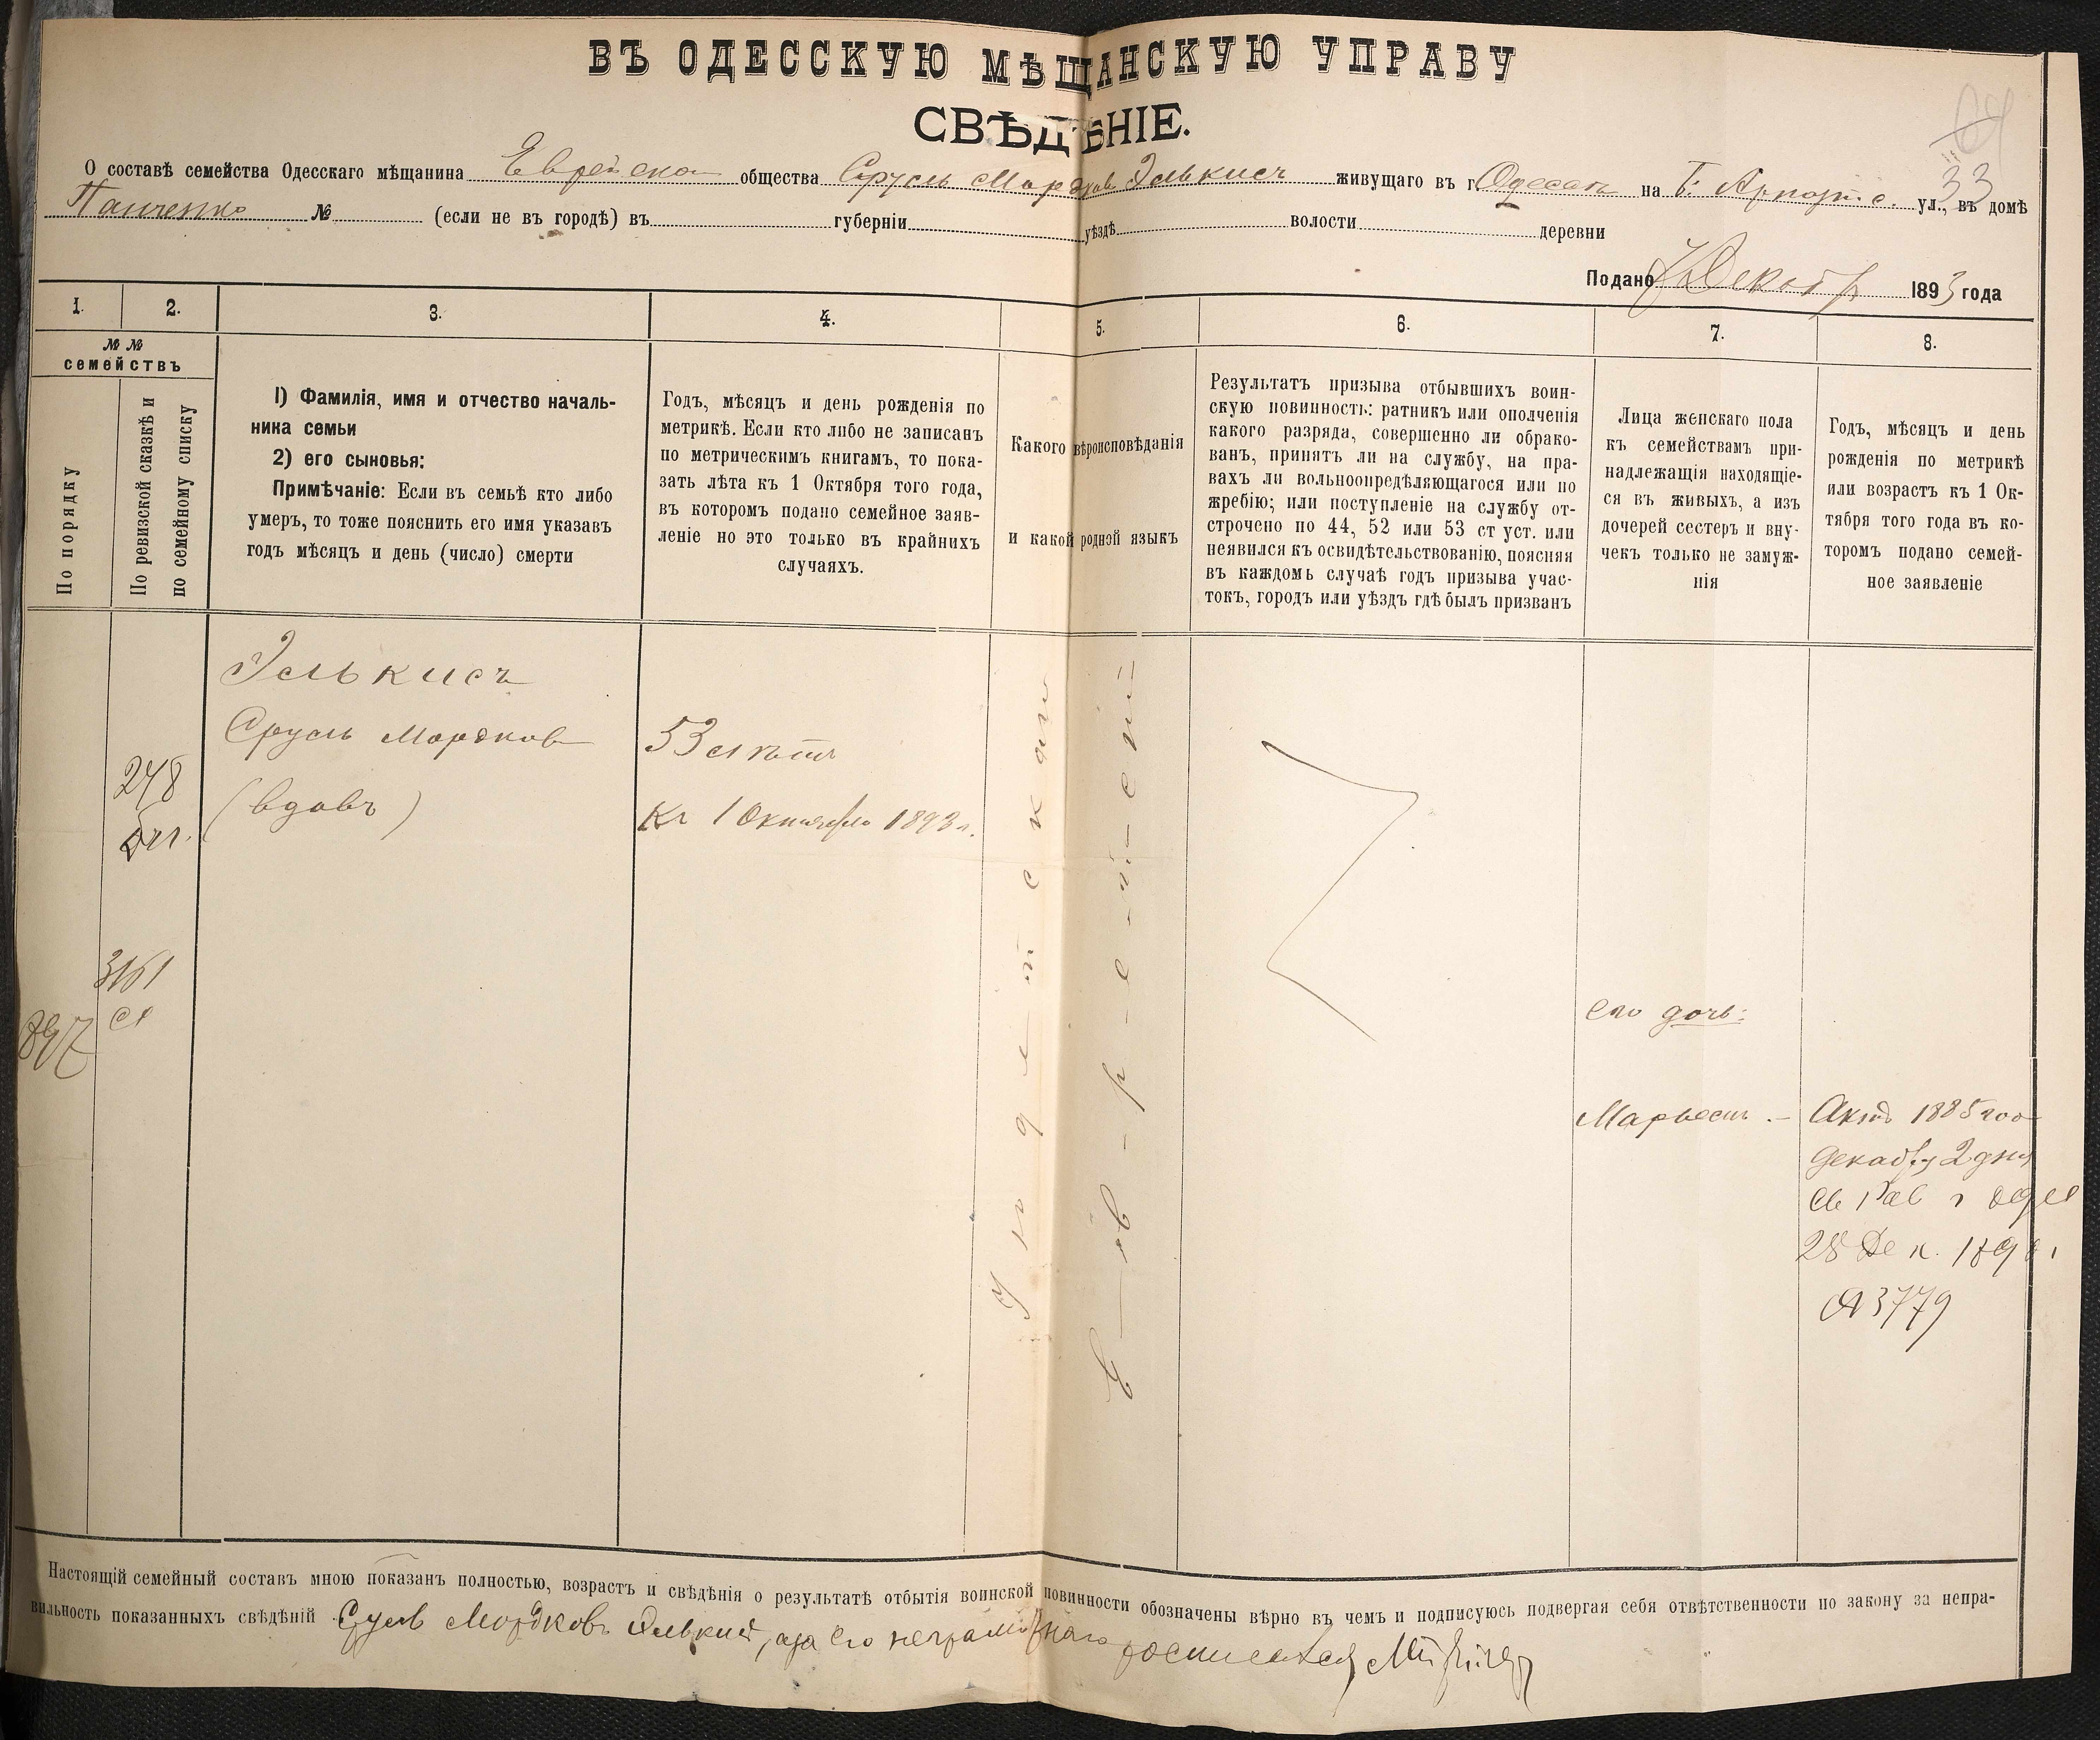 ВЪ ОДЕССКУЮ МѢЩАНСКУЮ УПРАВУ
СВѢДѢНІЕ.
О составѣ семейства Одесскаго мѣщанина Еврейско общества Сруль Мордков Элькисъ живущаго въ г. Одессѣ на Б. Арнаутс. ул., въ домѣ
33
Панченко № (если не въ городѣ) въ губерніи уѣздѣ волости деревни
Подано Декабр 1893 года
1. 2. 3. 4. 5. 6. 7. 8.
№ №
семействъ
По порядку
По ревизской сказкѣ и
по семейному списку
1) Фамилія, имя и отчество началь-
ника семьи
2) его сыновья:
Примѣчаніе: Если въ семьѣ кто либо
умеръ, то тоже пояснить его имя указавъ
годъ мѣсяцъ и день (число) смерти
Годъ, мѣсяцъ и день рожденія по
метрикѣ. Если кто либо не записанъ
по метрическимъ книгамъ, то пока-
зать лѣта къ 1 Октября того года,
въ которомъ подано семейное заяв-
леніе но это только въ крайнихъ
случаяхъ.
Какого вѣроисповѣданія
и какой родной языкъ
Результатъ призыва отбывшихъ воин-
скую повинность: ратникъ или ополченія
какого разряда, совершенно ли обрако-
ванъ, принятъ ли на службу, на пра-
вахъ ли вольноопредѣляющагося или по
жребію; или поступленіе на службу от-
строчено по 44, 52 или 53 ст уст. или
неявился къ освидѣтельствованію, поясняя
въ каждомъ случаѣ годъ призыва учас-
токъ, городъ или уѣздъ гдѣ былъ призванъ
Лица женскаго пола
къ семействамъ при-
надлежащія находящіе-
ся въ живыхъ, а изъ
дочерей сестеръ и вну-
чекъ только не замуж-
нія
Годъ, мѣсяцъ и день
рожденія по метрикѣ
или возрастъ къ 1 Ок-
тября того года въ ко-
торомъ подано семей-
ное заявленіе
897
248
3161
сл
Элькисъ
Сруль Мордков
(вдовъ)
53 лѣтъ
Къ 1 Октября 1893 г.
Іудейскаго
Еврейскій
его дочь:
Марьясъ. —
Актъ 1885 го
Декабр 2 дня
28 Дек. 189
№ 3779
Настоящій семейный составъ мною показанъ полностью, возрастъ и свѣдѣнія о результатѣ отбытія воинской повинности обозначены вѣрно въ чемъ и подписуюсь подвергая себя отвѣтственности по закону за непра-
вильность показанныхъ свѣдѣній Сруль Мордковъ Элькис, а за его неграмотнаго росписался